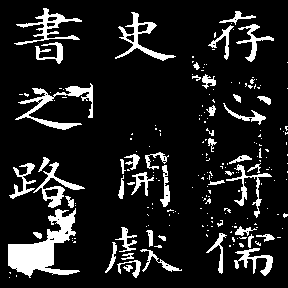 存心乎儒
史 開獻
書之路